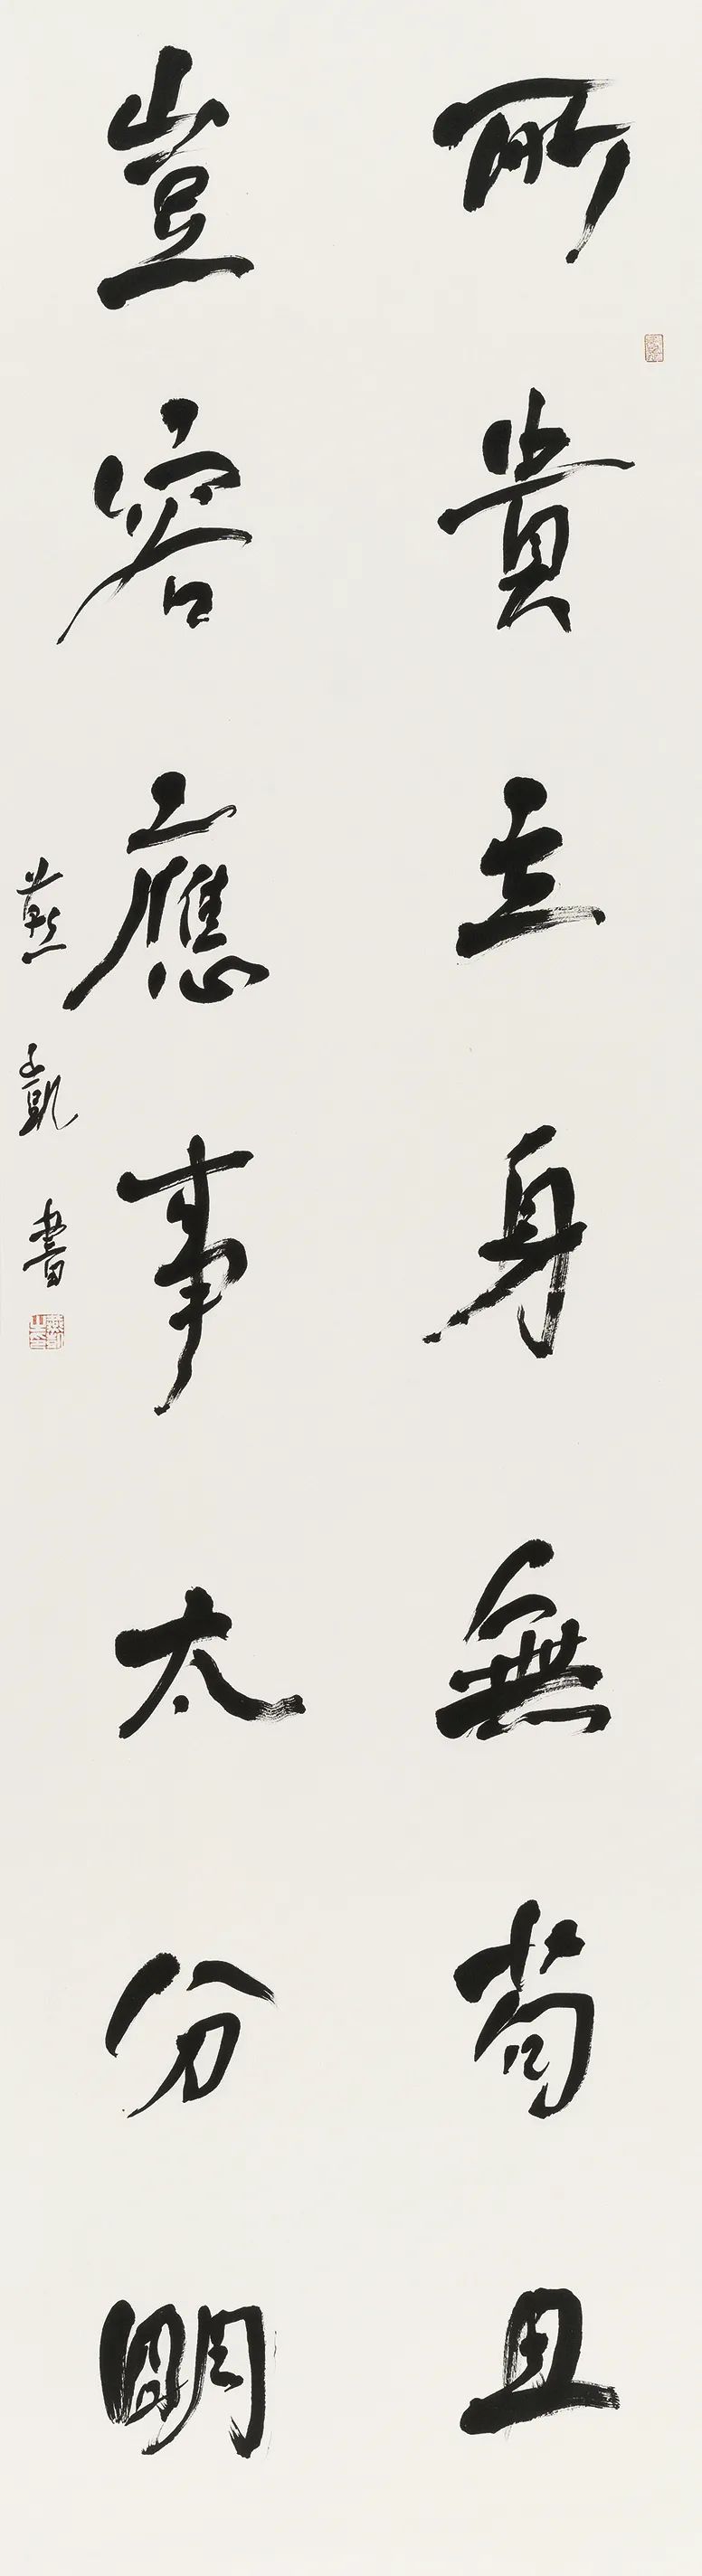 所貴立身無苟且
豈容應事太分明
燕子凱書